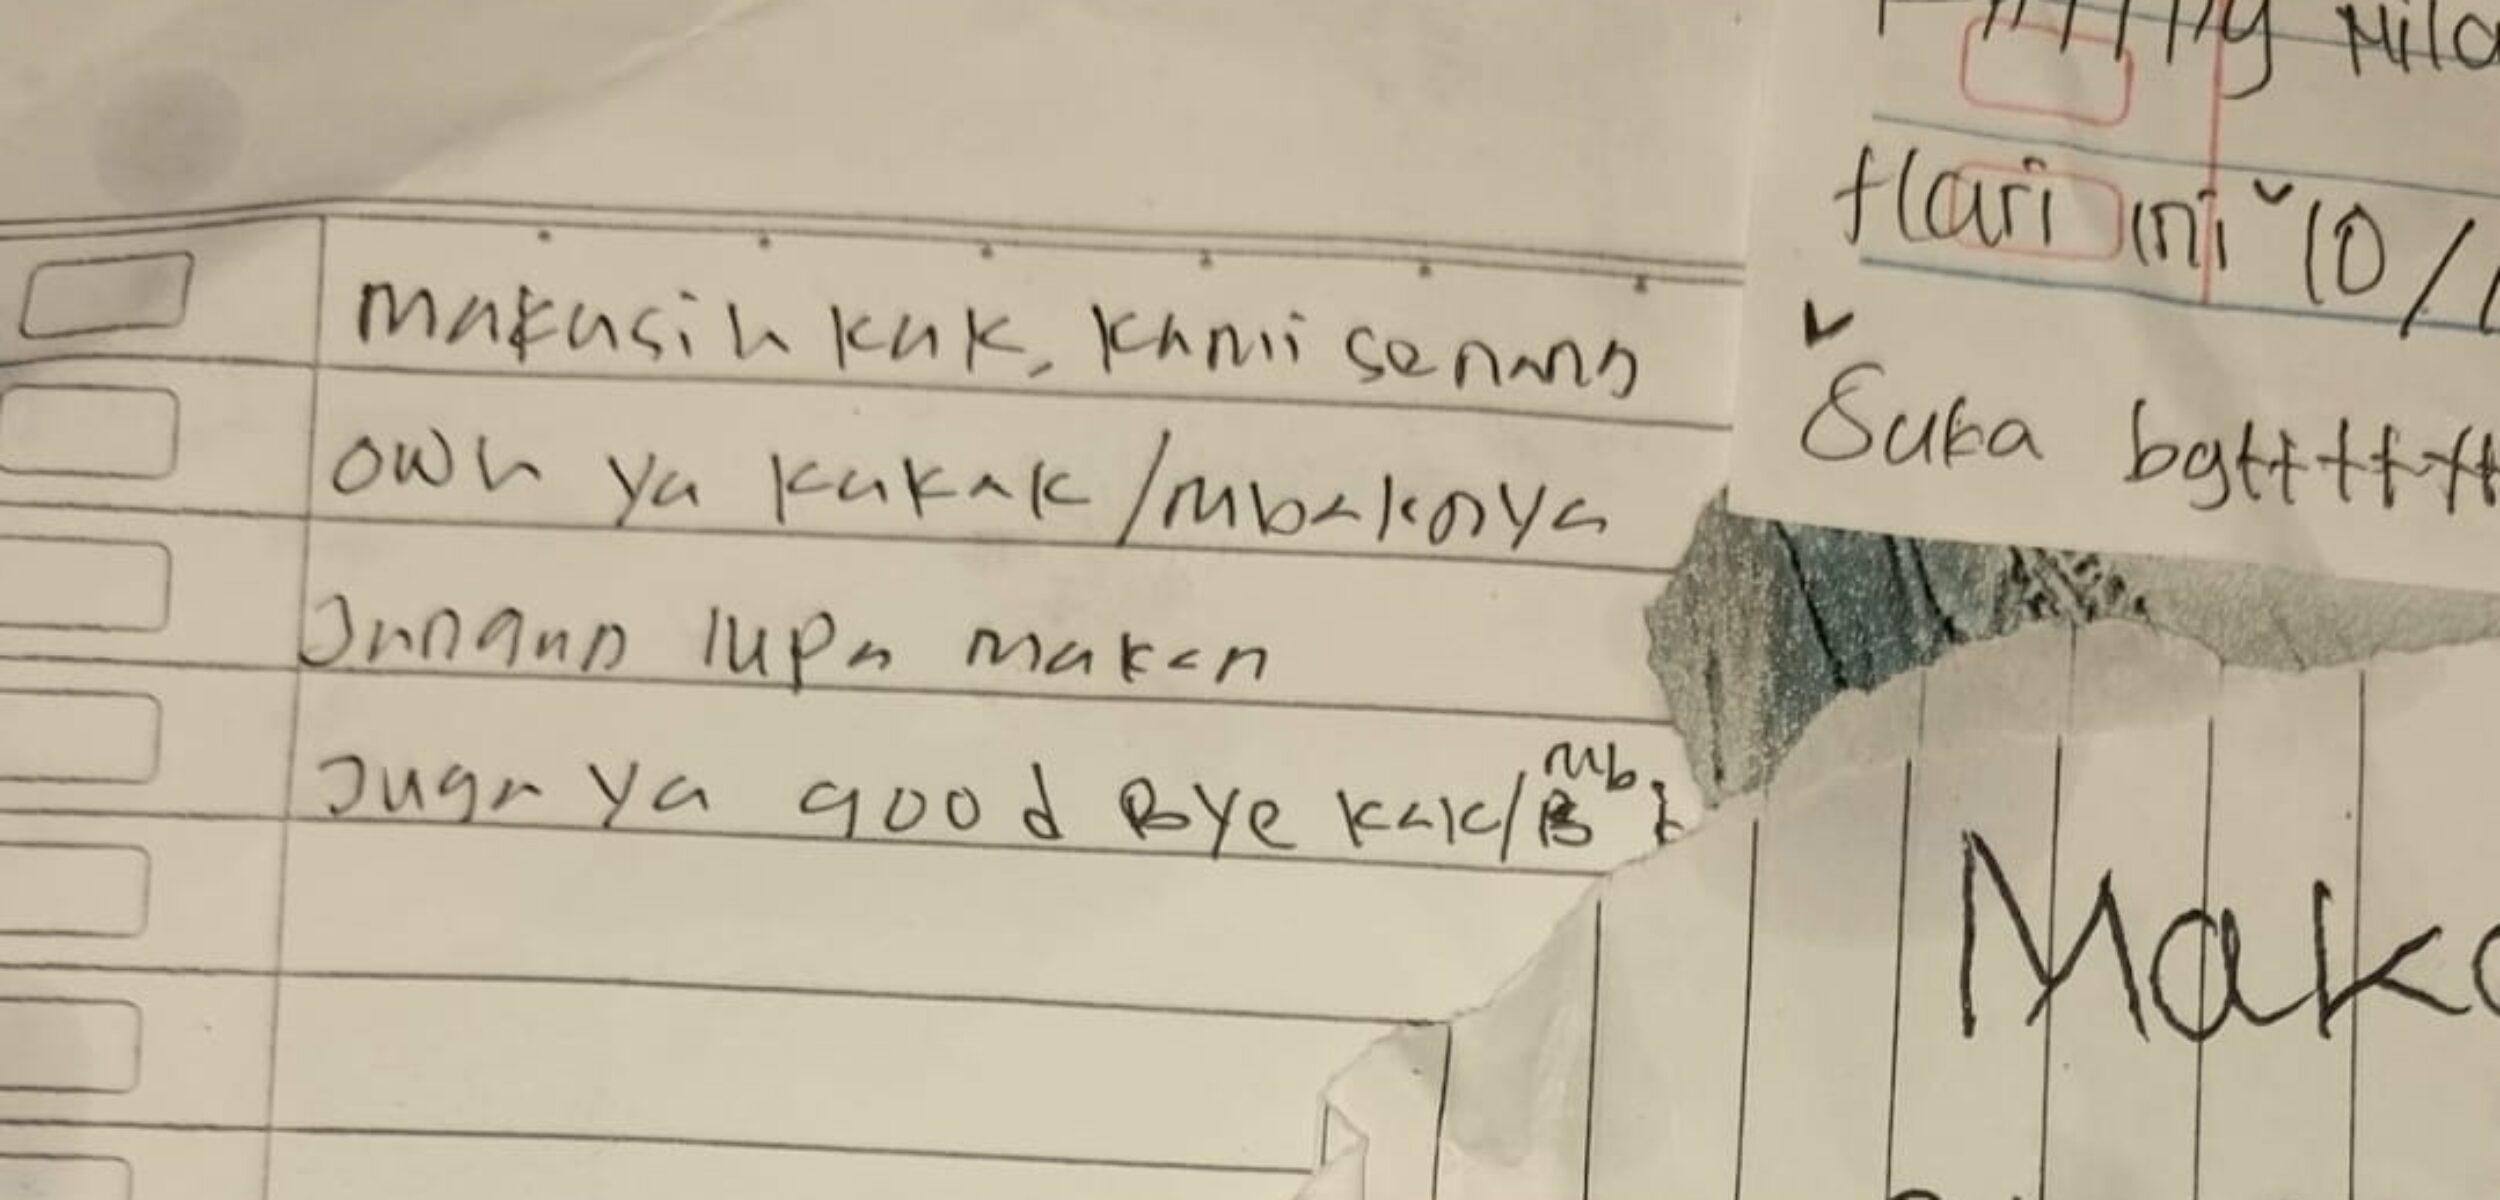 Makasih kak, kami senang
owh ya kakak/mbaknya
Jangan lupa makan
Juga ya good Bye kak/mb
Hari ini 10/
Suka bgttttttt
Mak